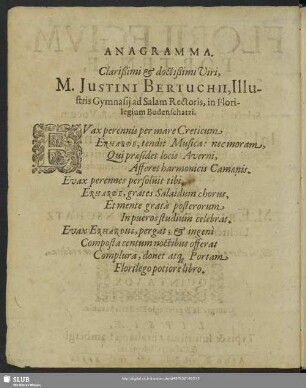 ANAGRAMMA.
Clarißimi & doctißimi Viri,
M. JUSTINI BERTUCHII, Illu-
stris Gymnasij ad Salam Rectoris, in Flori-
legium Bodenschatzi.
EVax perennis per mare Creticum
ERHARDE, tendit Musica: nec moram,
Qui præsidet locis Averni,
Afferet harmonicis Camœnis.
Evax perennes persolvit tibi,
ERHARDE, grates Salaidum chorus,
Et mente gratâ posterorum
In pueros studium celebrat.
EVAX ERHARDUS, pergat, & ingenî
Composta centum noctibus offerat
Complura, donet atq; Portam
Florilego potiore libro.
SLUB
http://digital.slub-dresden.de/